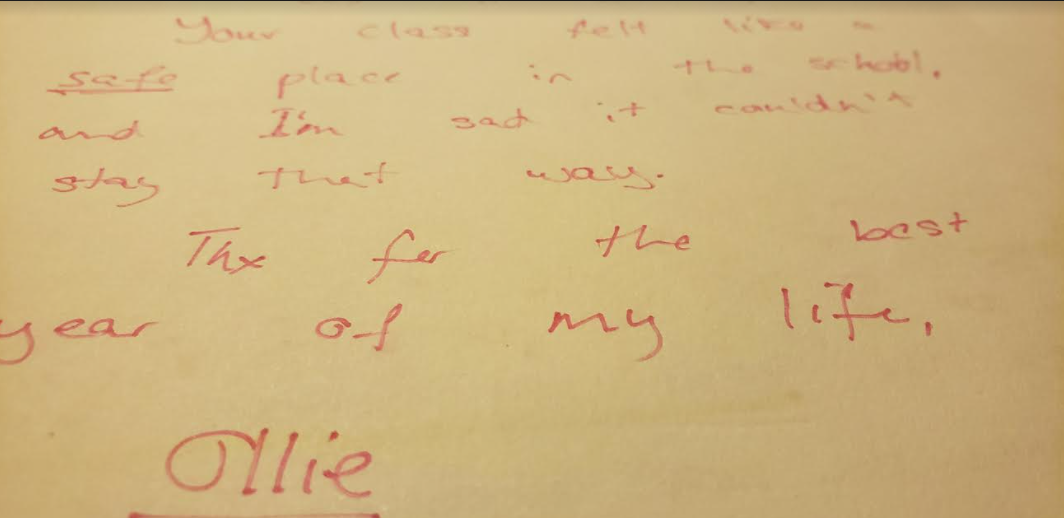 Your class felt like a
safe place in the school,
and I'm sad it couldn't
stay that way.
Thx for the best
year of my life,
Ollie